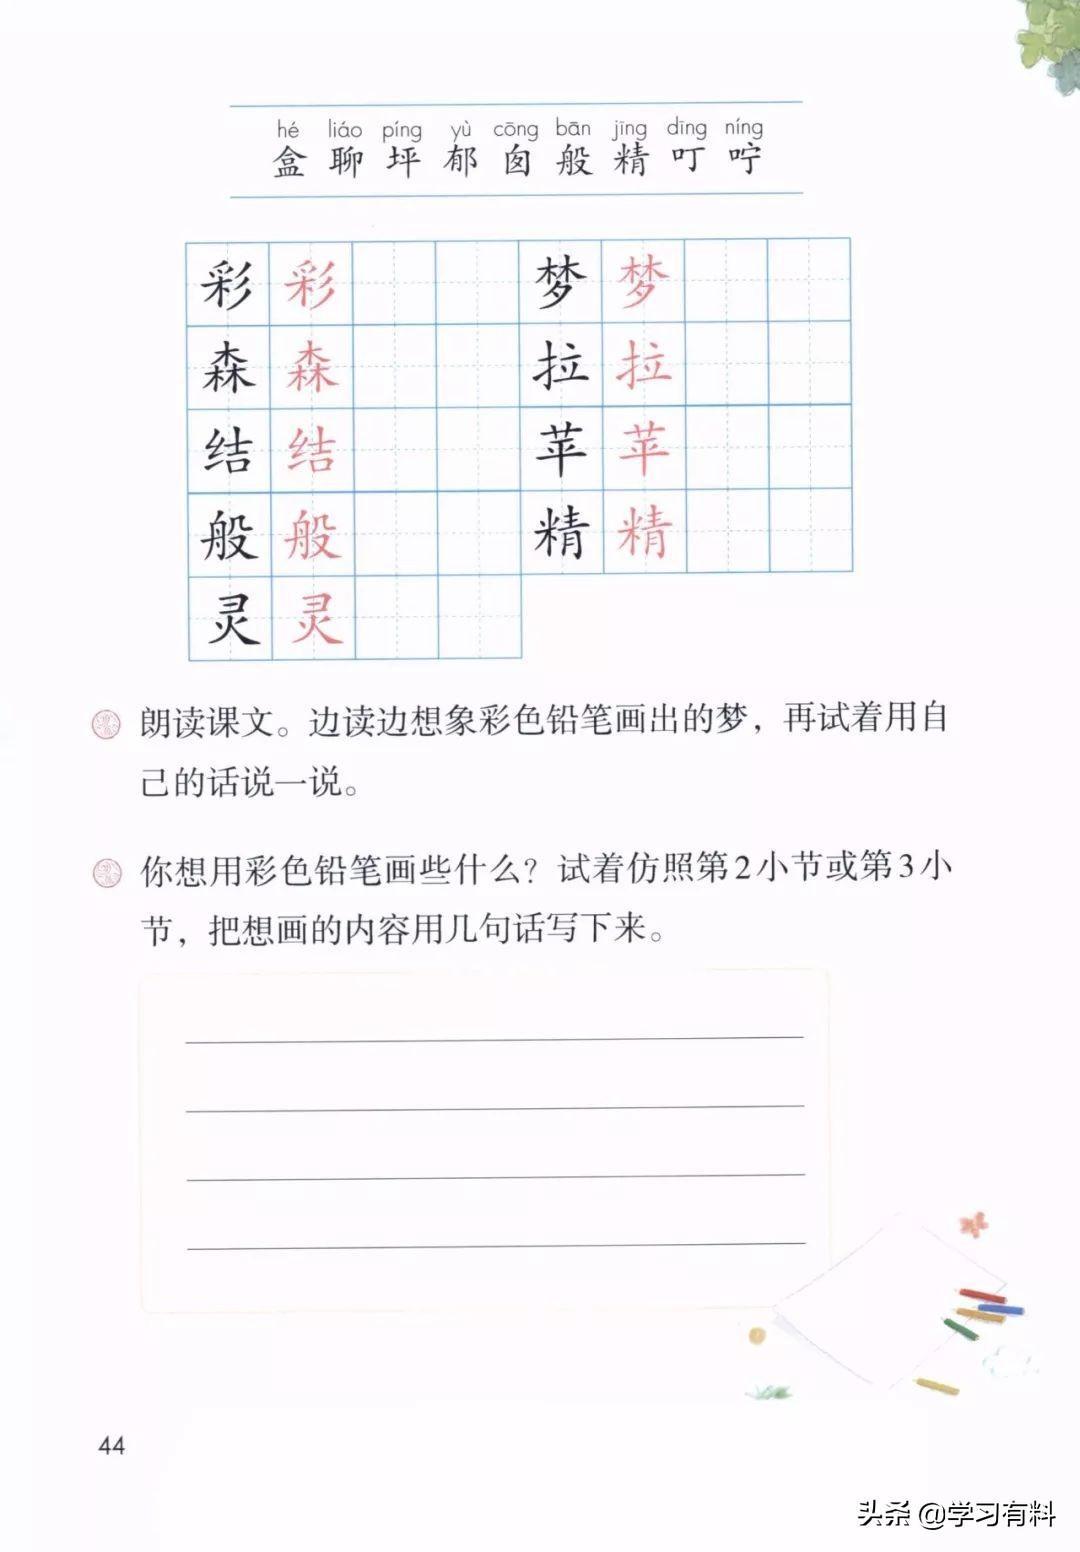 hé liáo píng yù cōng bān jīng dīng níng
盒 聊 坪 郁 囱 般 精 叮 咛
彩 彩 梦 梦
森 森 拉 拉
结 结 苹 苹
般 般 精 精
灵 灵
朗读课文。边读边想象彩色铅笔画出的梦，再试着用自
己的话说一说。
你想用彩色铅笔画些什么？试着仿照第2小节或第3小
节，把想画的内容用几句话写下来。
44
头条 @学习有料